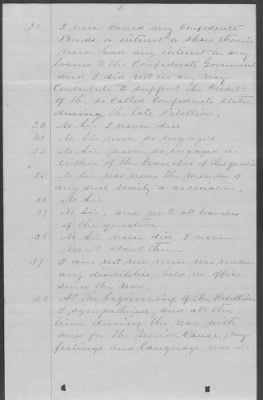 31 I never owned any Confederate
Bonds, or interest or share therein
never had any interest in any
loans to the Confederate Government
and I did not in any way
Contribute to support the Credit
of the so Called Confederate States
during the late Rebellion.
32 No Sir I never did
33 No Sir never so engaged
34 No Sir never so engaged in
either of the branches of the question
35 No Sir was never the member of
any such society or association.
36 No Sir
37 No Sir, and no to all branches
of the question
38 No Sir never did, I never
went about them
39 I am not nor never was under
any disabilities, held no office
since the war.
40 At the beginning of the Rebellion
I sympathized, and all the
time during the war with
and for the Union Cause, my
feelings and language was all